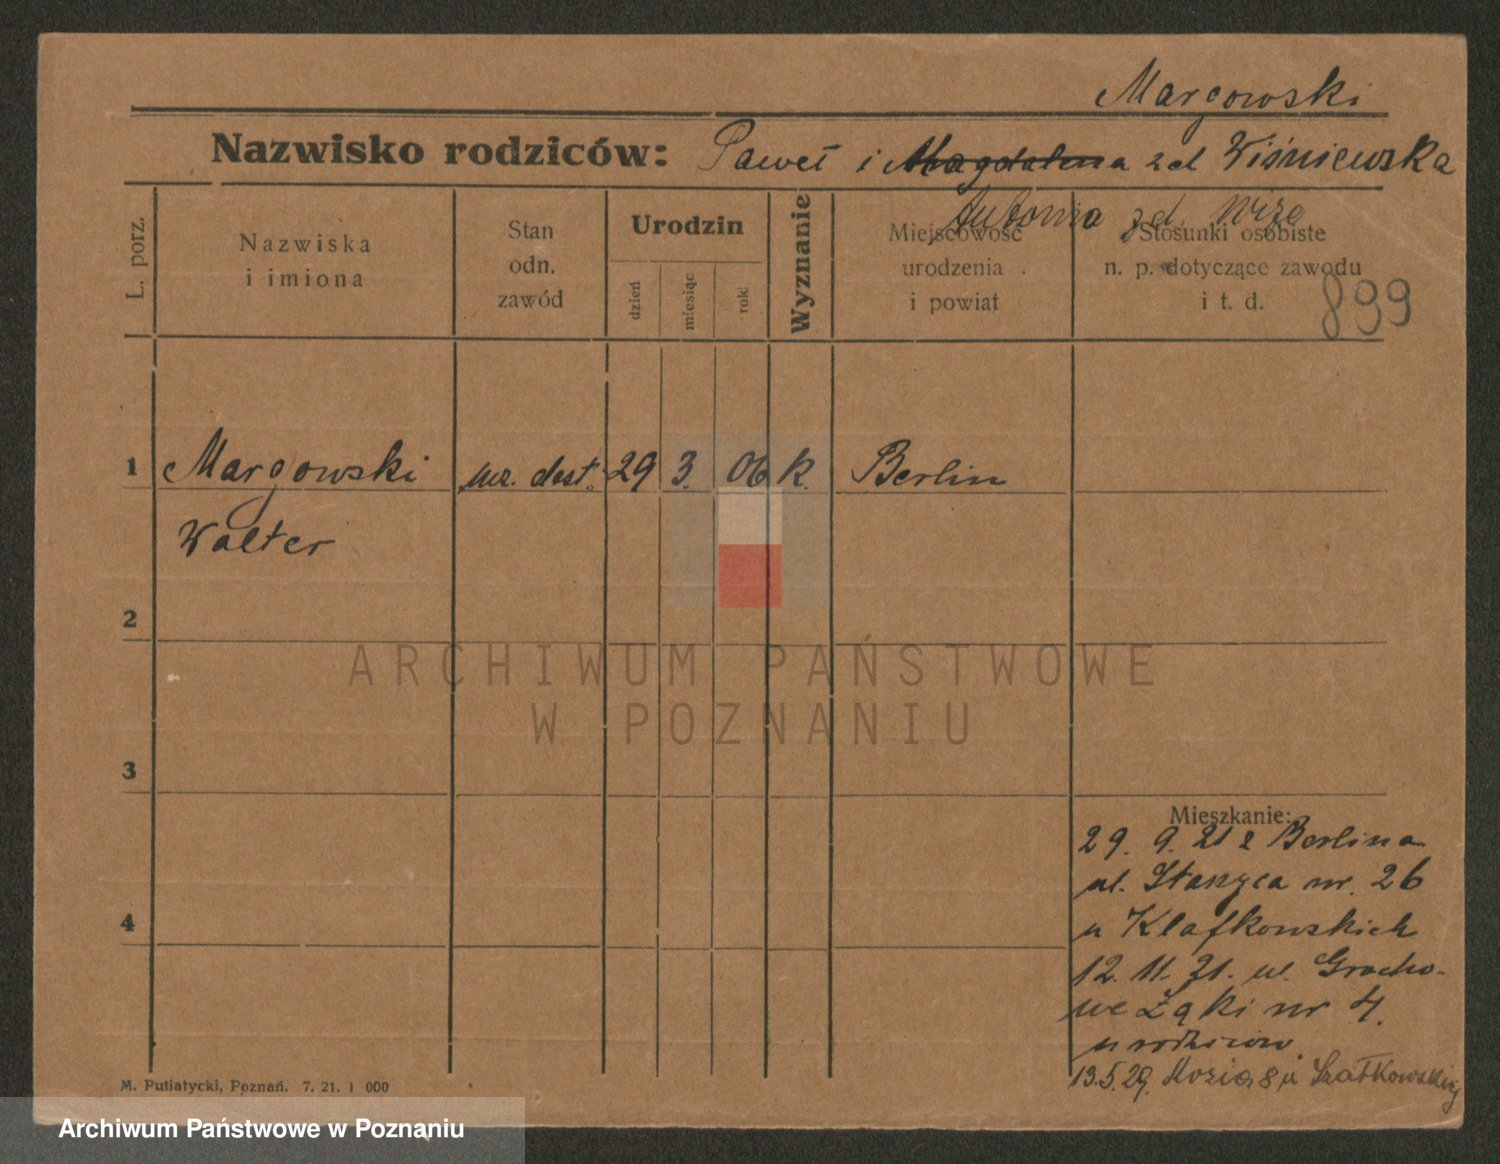 Margowski
Nazwisko rodziców: Paweł i Magdalena zd Wiśniewska
Antonia zd.
L. porz.
Nazwiska
i imiona
Stan
odn.
zawód
Urodzin
dzień
miesiąc
rok
Wyznanie
Miejscowość
urodzenia
i powiat
Stosunki osobiste
n. p. dotyczące zawodu
i t. d.
899
1 Margowski 29 3. 06 k. Berlin
Walter
2
3
4
Mieszkanie:
29. 9. 21 z Berlina
ul. Stanyca nr. 26
u Klafkowskich
12. 11. 21. ul. Grocho-
we Łąki nr 4.
u rodziców.
13.5.29. Kozia 8 u Szatkowskiej
M. Putiatycki, Poznań. 7. 21. 1 000
ARCHIWUM PAŃSTWOWE
W POZNANIU
Archiwum Państwowe w Poznaniu